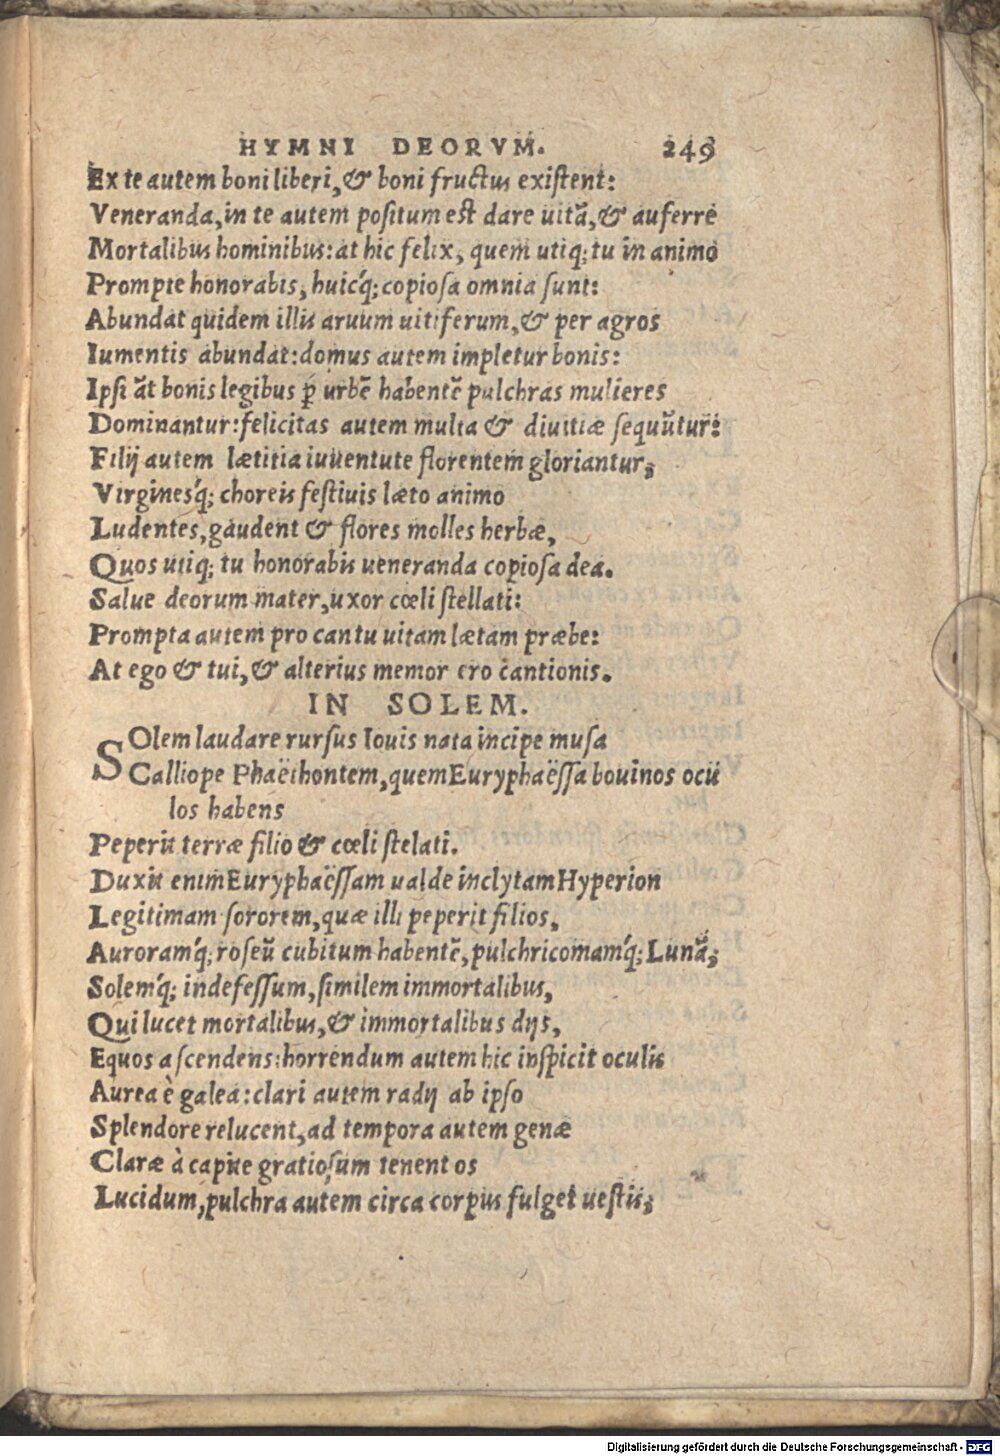 HYMNI DEORVM. 249
Ex te autem boni liberi, & boni fructus existent:
Veneranda, in te autem positum est dare uitã, & auferre
Mortalibus hominibus: at hic felix, quem utiq; tu in animo
Prompte honorabis, huicq́; copiosa omnia sunt:
Abundat quidem illis aruum uitiferum, & per agros
Iumentis abundat: domus autem impletur bonis:
Ipsi aũt bonis legibus ꝑ urbẽ habentẽ pulchras mulieres
Dominantur: felicitas autem multa & diuitiæ sequũtur:
Filij autem lætitia iuuentute florentem gloriantur;
Virginesq́; choreis festiuis læto animo
Ludentes, gaudent & flores molles herbæ,
Quos utiq; tu honorabis ueneranda copiosa dea.
Salue deorum mater, uxor cœli stellati:
Prompta autem pro cantu uitam lætam præbe:
At ego & tui, & alterius memor ero cantionis.
IN SOLEM.
SOlem laudare rursus Iouis nata incipe musa
Calliope Phaëthontem, quem Euryphaëssa bouinos ocu
los habens
Peperit terræ filio & cœli stelati.
Duxit enim Euryphaëssam ualde inclytam Hyperion
Legitimam sororem, quæ illi peperit filios,
Auroramq́; roseũ cubitum habentẽ, pulchricomamq́; Lunã;
Solemq́; indefessum, similem immortalibus,
Qui lucet mortalibus, & immortalibus dijs,
Equos ascendens: horrendum autem hic inspicit oculis
Aurea è galea: clari autem radij ab ipso
Splendore relucent, ad tempora autem genæ
Claræ à capite gratiosum tenent os
Lucidum, pulchra autem circa corpus fulget uestis;
Digitalisierung gefördert durch die Deutsche Forschungsgemeinschaft - DFG